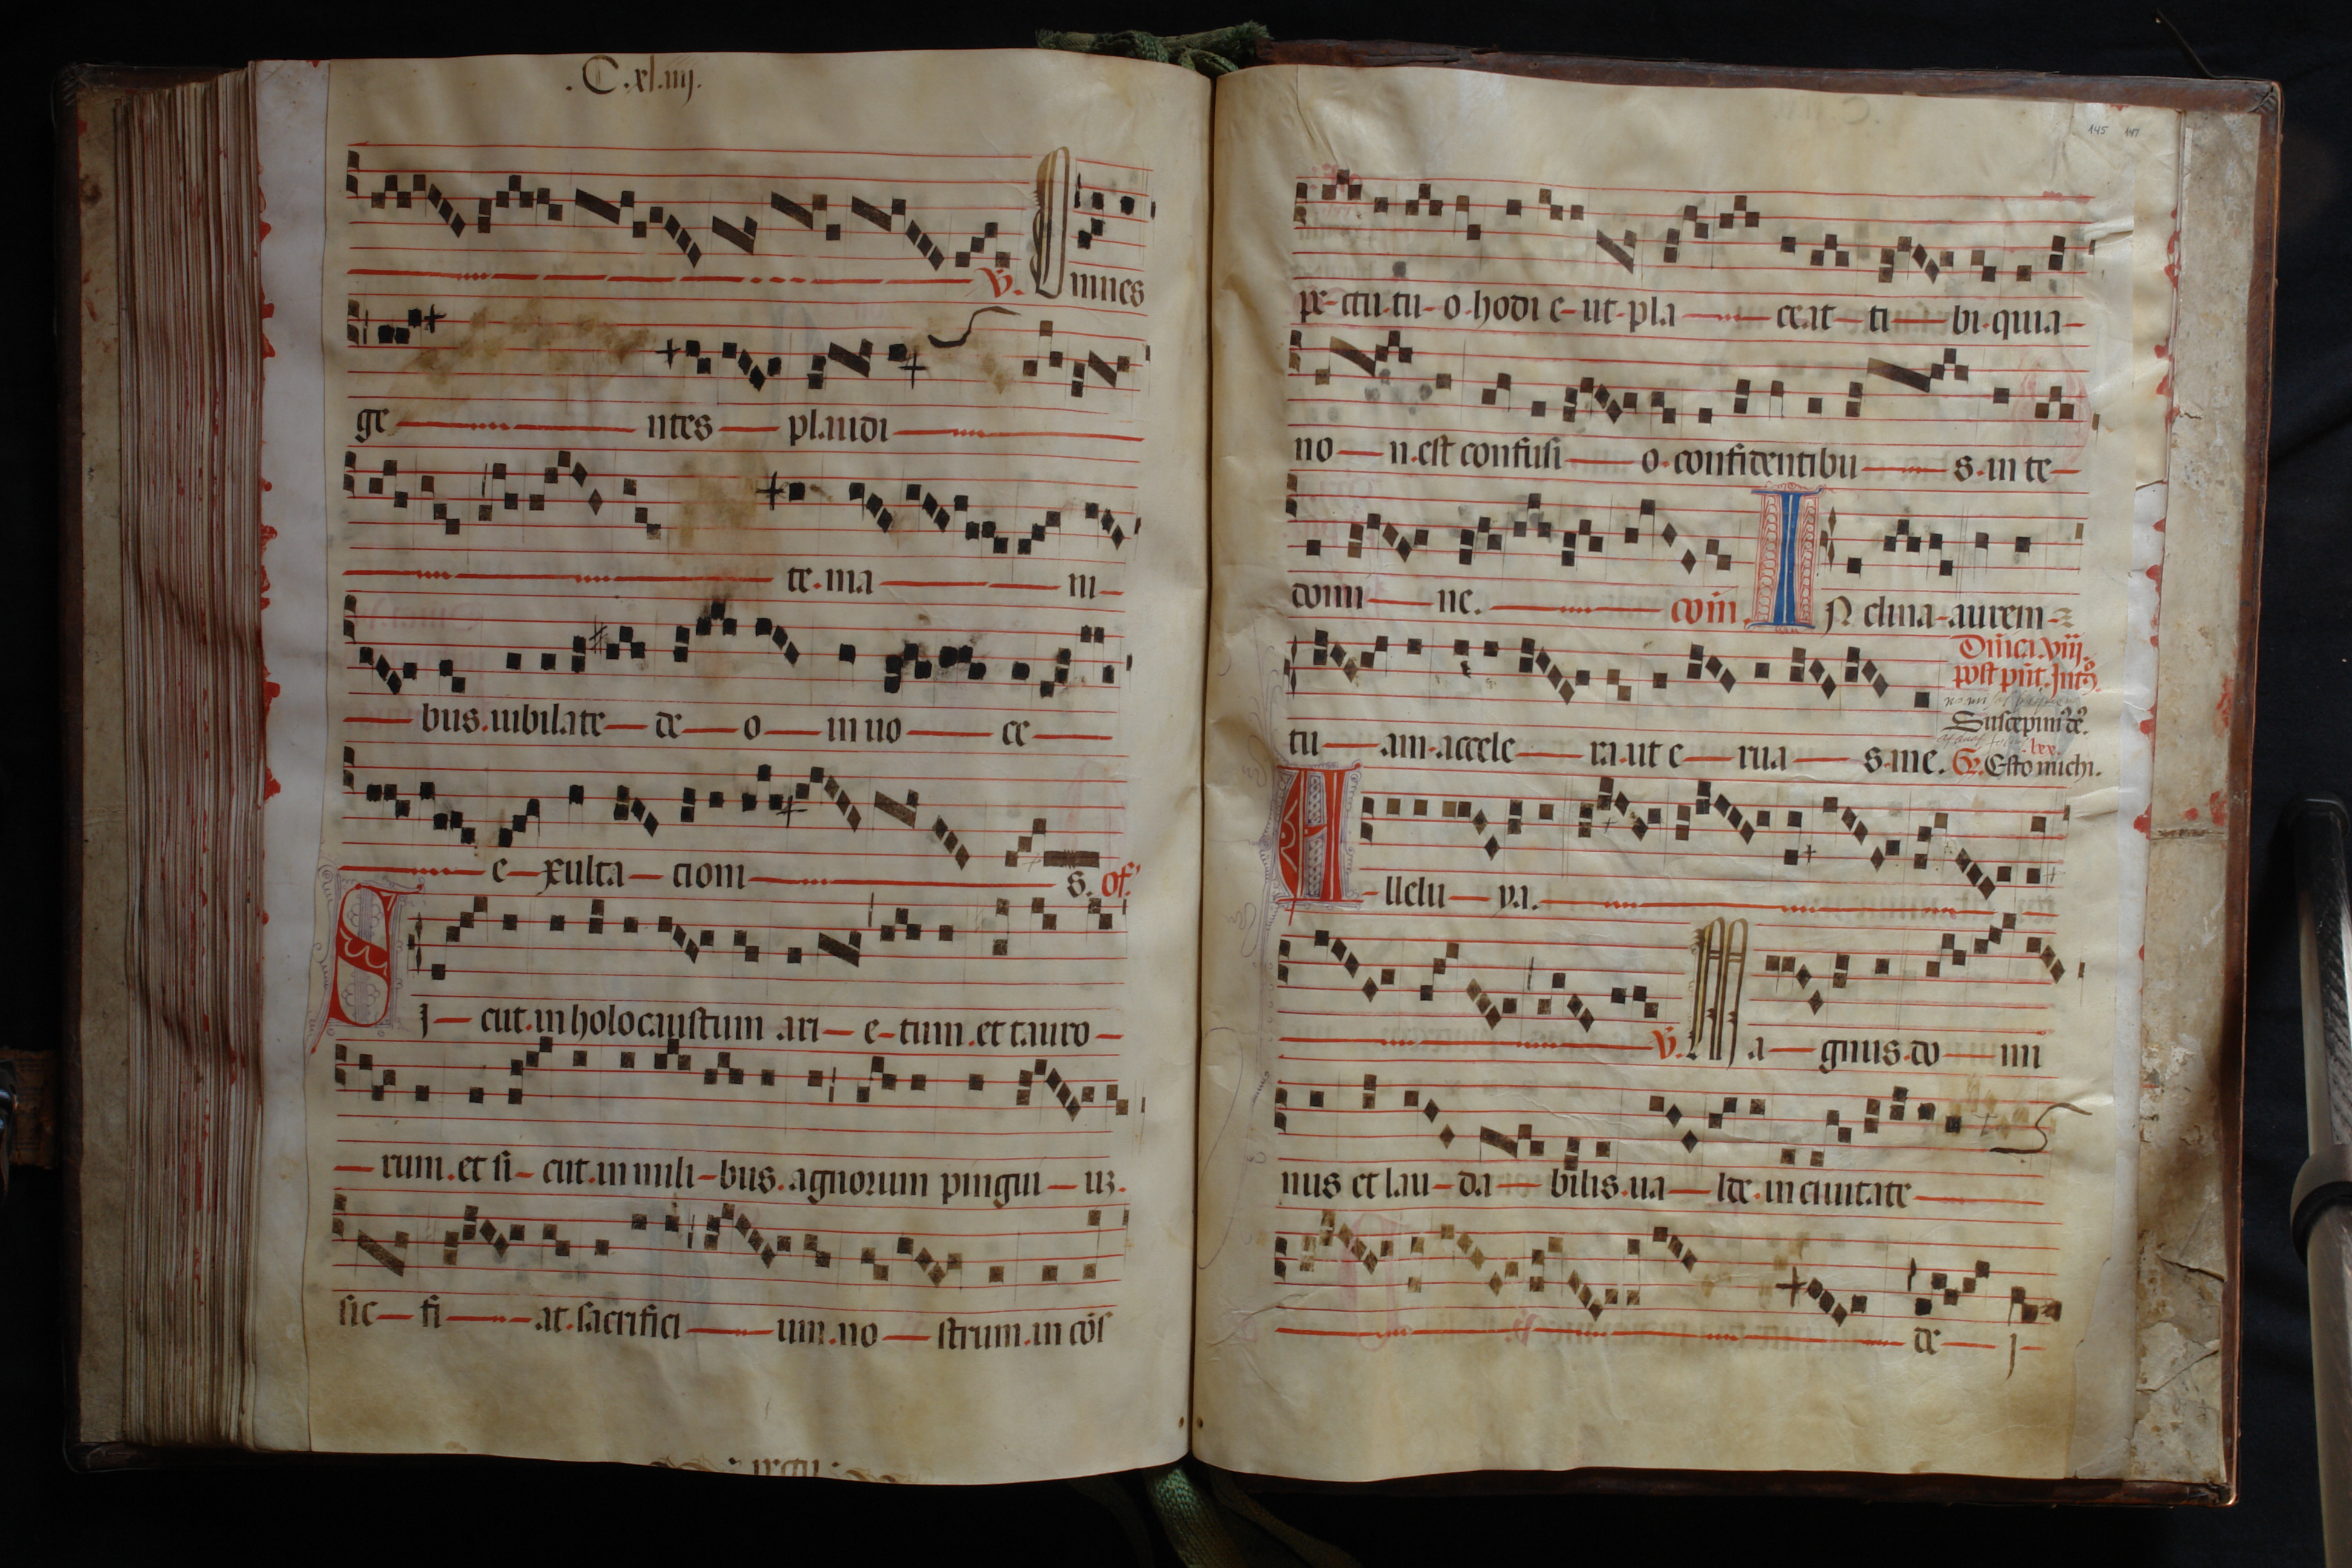 .C.xl.iiij.
v. Omnes
ge ntes plaudi
te.ma ni
bus.iubilate de o in uo ce
e xulta cioni s. of.
SJ cut.in holocaustum ari e-tum.et tauro
rum.et si cut.in mili bus.agnorum pingui uz.
sic fi at.sacrifici um.no strum.in cōs
145 147
pe-ctu.tu-o.hodi e-ut-pla ceat ti bi.quia
no n.est confusi o.confidentibu s.in te
domi ne. com. IN clina-aurem
tu am.accele ra.ut e rua s.me.
Dn̄ica.viij.
post pn̄t.Int.
Suscepim.de.
Gr. Esto michi.
A llelu ya.
v. Ma gnus.do mi
nus et lau da bilis.ua lde.in ciuitate
de j